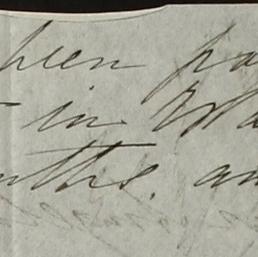 been pa
in Wa
nths. an